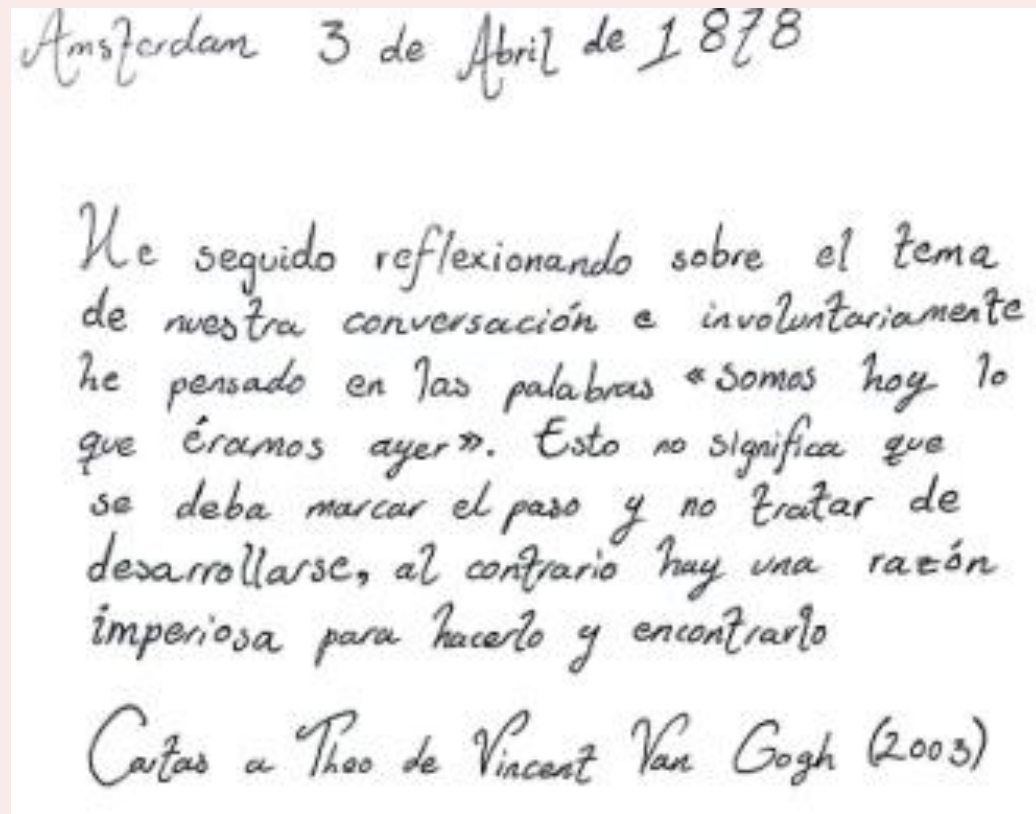 Amsterdam 3 de Abril de 1878
He seguido reflexionando sobre el tema
de nuestra conversación e involuntariamente
he pensado en las palabras «somos hoy lo
que éramos ayer». Esto no significa que
se deba marcar el paso y no tratar de
desarrollarse, al contrario hay una razón
imperiosa para hacerlo y encontrarlo
Cartas a Theo de Vincent Van Gogh (2003)